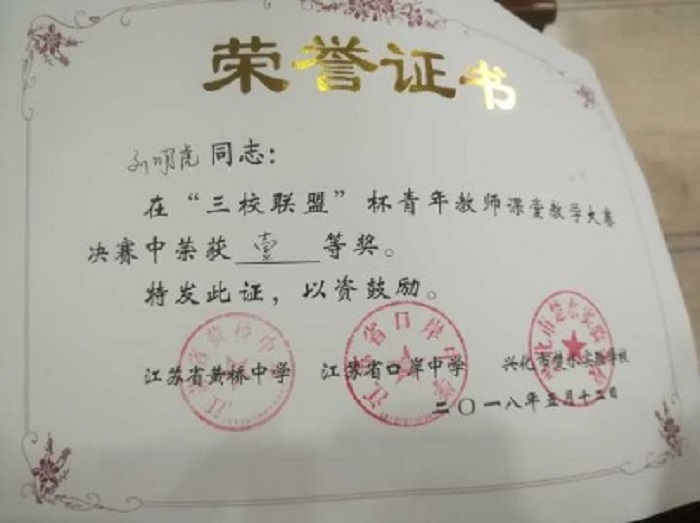 荣誉证书
刘明虎同志：
在“三校联盟”杯青年教师课堂教学大赛
决赛中荣获 壹 等奖。
特发此证，以资鼓励。
江苏省黄桥中学 江苏省口岸中学 兴化市楚水实验学校
二〇一八年五月十二日